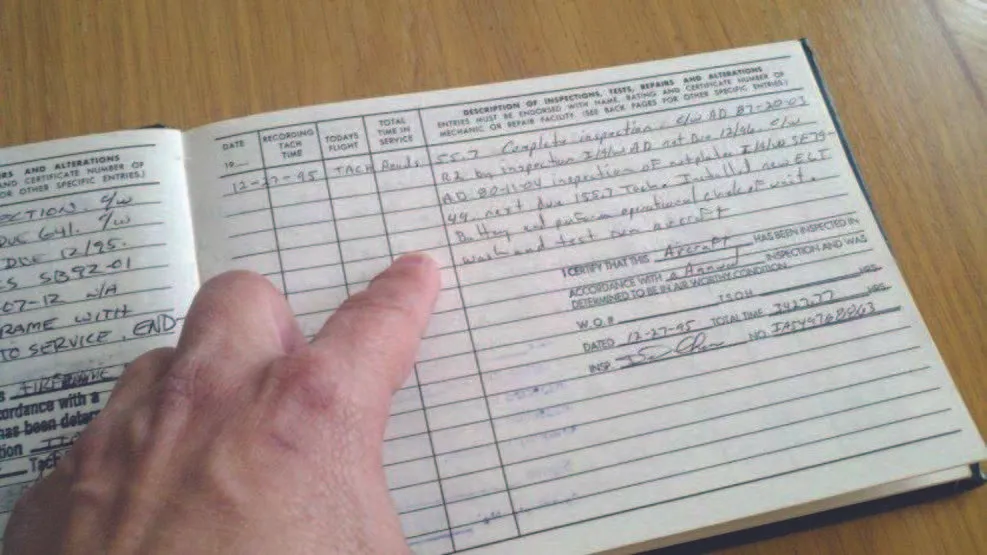 RS AND ALTERATIONS
AND CERTIFICATE NUMBER OF
FOR OTHER SPECIFIC ENTRIES.)
ECTION C/W
DUE 641.
DUE 12/95.
ES SB92-01
07-12 N/A
FRAME WITH
TO SERVICE. END
cordance with a
has been deter
tion
Tach
DATE
19
RECORDING
TACH
TIME
TODAYS
FLIGHT
TOTAL
TIME IN
SERVICE
DESCRIPTION OF INSPECTIONS, TESTS, REPAIRS AND ALTERATIONS
ENTRIES MUST BE ENDORSED WITH NAME, RATING AND CERTIFICATE NUMBER OF
MECHANIC OR REPAIR FACILITY. (SEE BACK PAGES FOR OTHER SPECIFIC ENTRIES.)
12-27-95 TACH Reads 55.7 Complete inspection - C/W AD 87-20-03
R2 by inspection AD not Due 12/96. C/W
AD 80-11-04 inspection of nutplates
next due 155.7 Tach. Installed new ELT
Battery and perform operational check of unit.
Wash and test run aircraft
I CERTIFY THAT THIS Aircraft HAS BEEN INSPECTED IN
ACCORDANCE WITH a Annual INSPECTION AND WAS
DETERMINED TO BE IN AIR WORTHY CONDITION.
W.O.# TSOH HRS.
DATED 12-27-95 TOTAL TIME 3427.77 HRS.
INSP. NO.